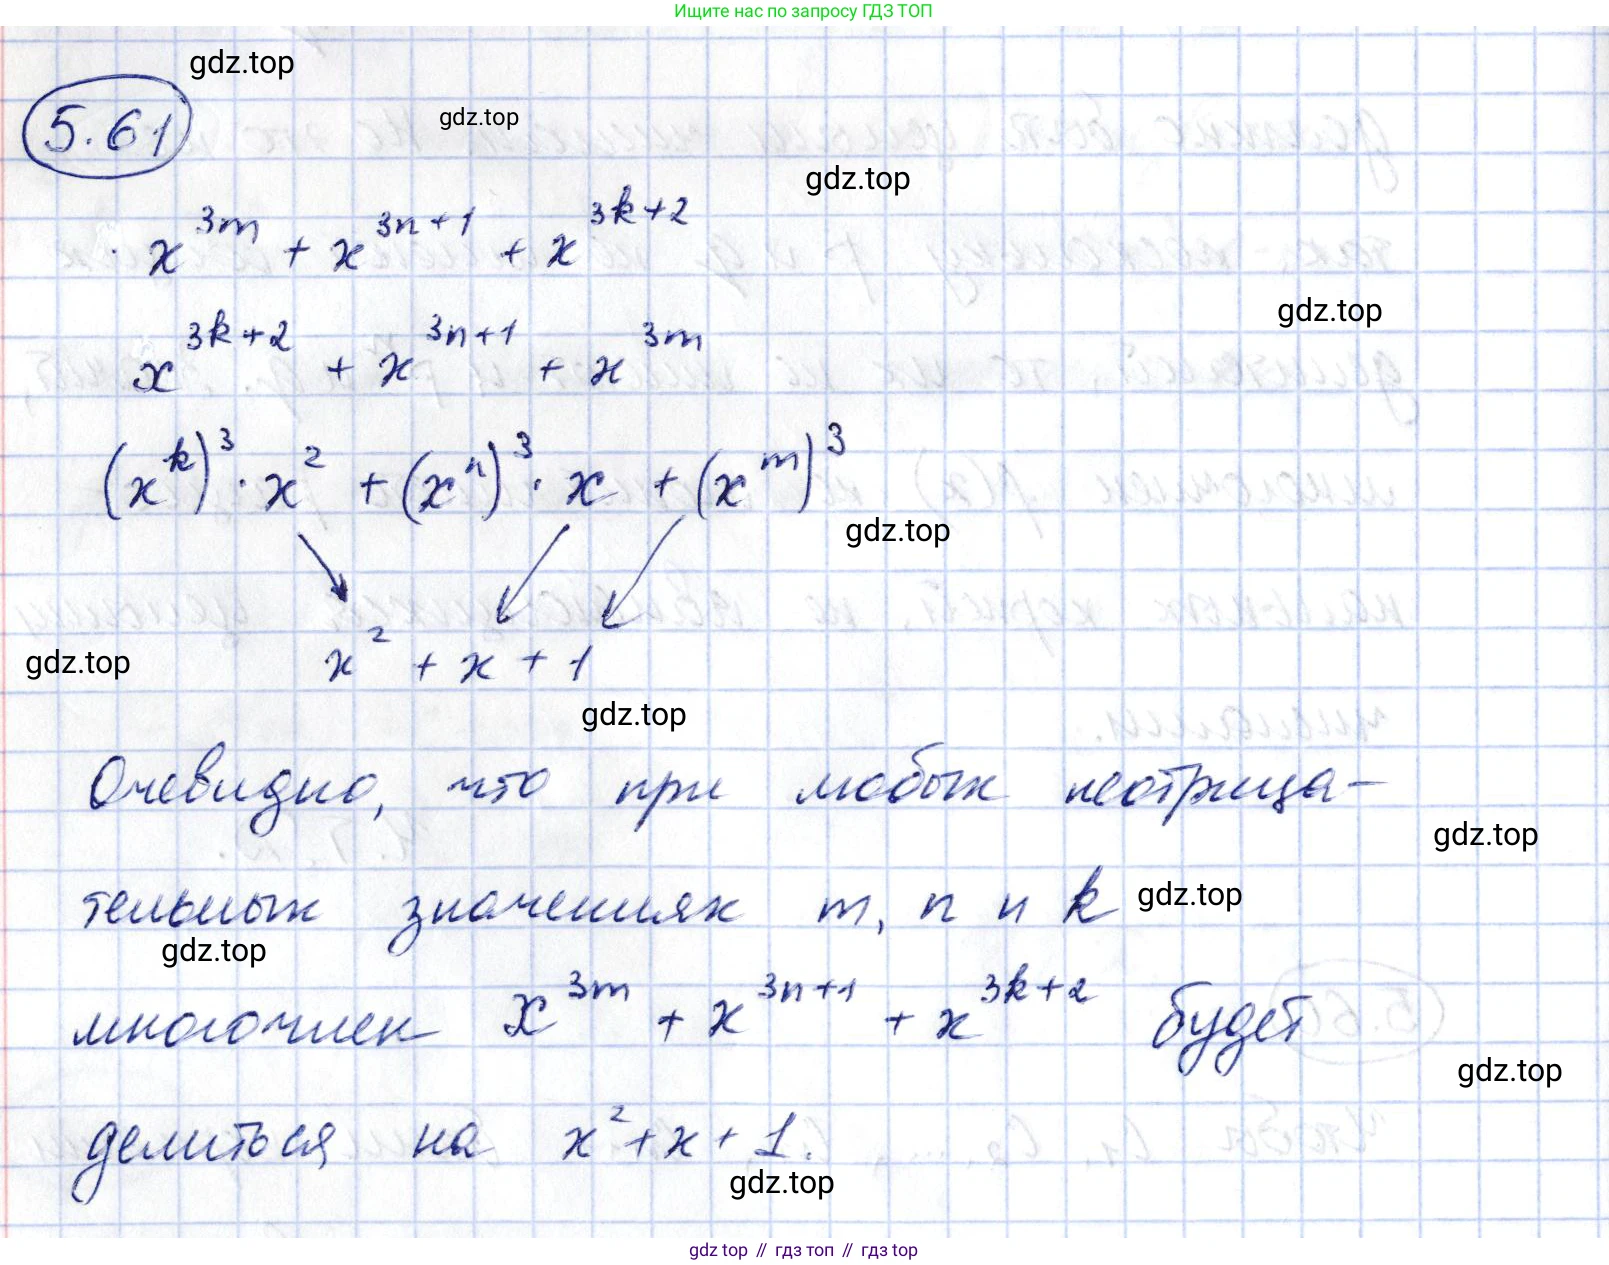 Ищите нас по запросу ГДЗ ТОП
gdz.top
gdz.top
5.61
gdz.top
x^{3m} + x^{3n+1} + x^{3k+2}
gdz.top
x^{3k+2} + x^{3n+1} + x^{3m}
(x^k)^3 · x^2 + (x^n)^3 · x + (x^m)^3
gdz.top
x^2 + x + 1
gdz.top
gdz.top
Очевидно, что при любых неотрица-
gdz.top
тельных значениях m, n и k
gdz.top
gdz.top
многочлен x^{3m} + x^{3n+1} + x^{3k+2} будет
gdz.top
делиться на x^2 + x + 1.
gdz.top
gdz top // гдз топ // gdz top